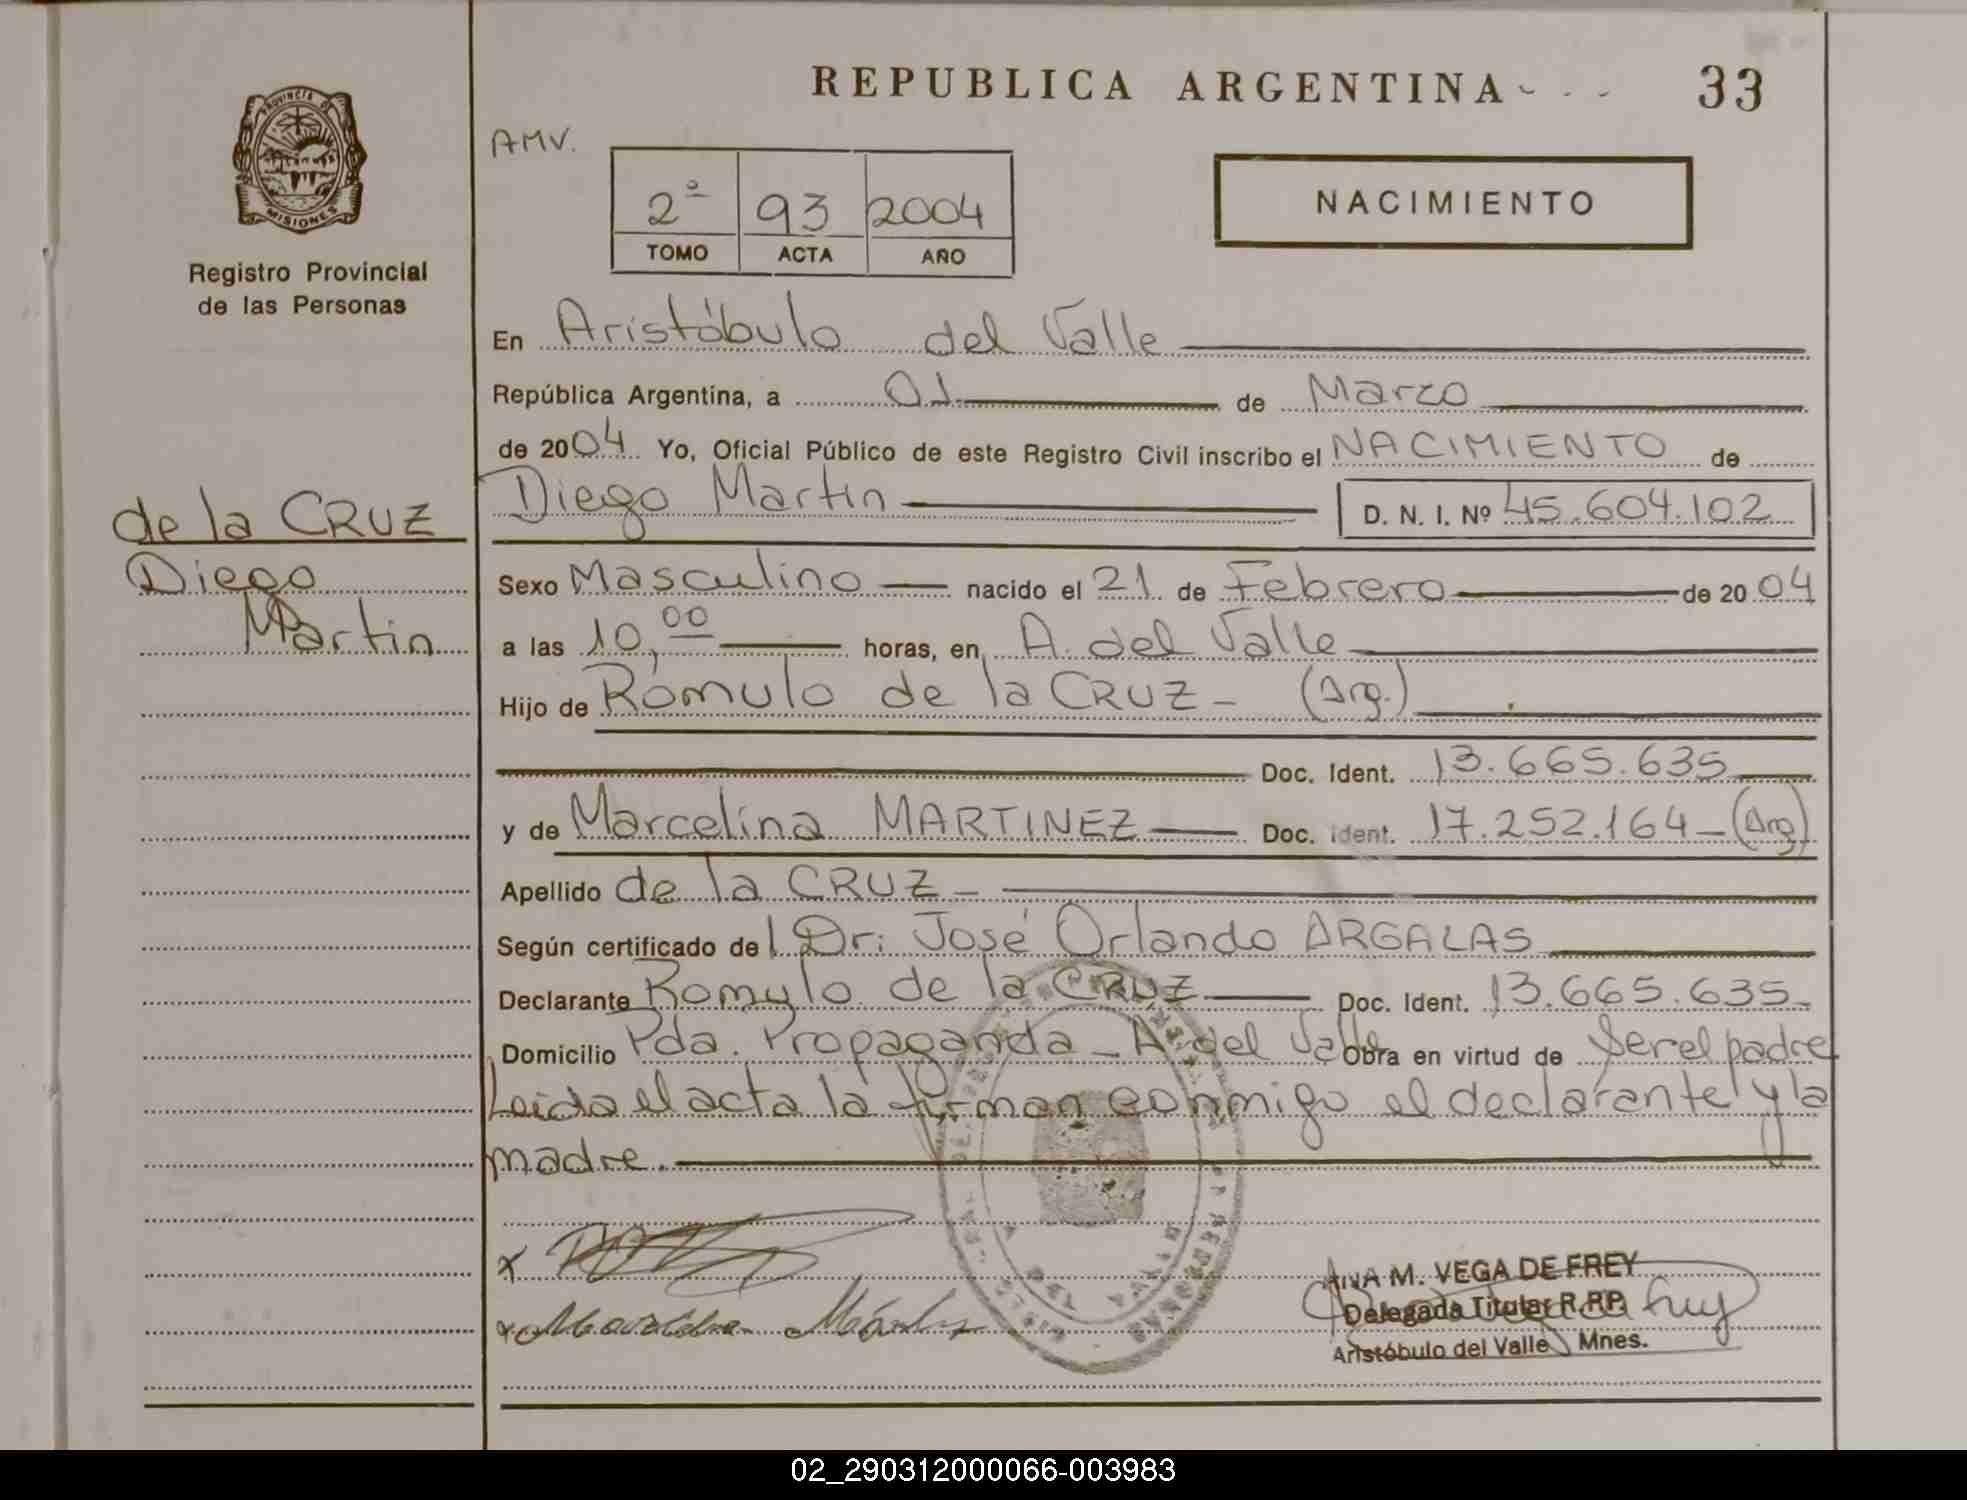 REPUBLICA ARGENTINA
33
PROVINCIA DE
MISIONES
Registro Provincial
de las Personas
AMV.
2º 93 2004
TOMO ACTA AÑO
NACIMIENTO
En Aristóbulo del Valle
República Argentina, a 01 de Marzo
de 2004 Yo, Oficial Público de este Registro Civil inscribo el NACIMIENTO de
Diego Martin D. N. I. Nº 45.604.102
de la CRUZ
Diego
Martin
Sexo Masculino nacido el 21 de Febrero de 2004
a las 10,00 horas, en A. del Valle
Hijo de Rómulo de la CRUZ - (Arg.)
Doc. Ident. 13.665.635
y de Marcelina MARTINEZ Doc. ident. 17.252.164 - (Arg)
Apellido de la CRUZ -
Según certificado del Dr: José Orlando ARGALAS
Declarante Romulo de la CRUZ Doc. Ident. 13.665.635-
Domicilio Pda. Propaganda - A del Valle Obra en virtud de Ser el padre
Leida el acta la firman conmigo el declarante y la
madre.
x
x
ANA M. VEGA DE FREY
Delegada Titular R.RP.
Aristóbulo del Valle Mnes.
02_290312000066-003983